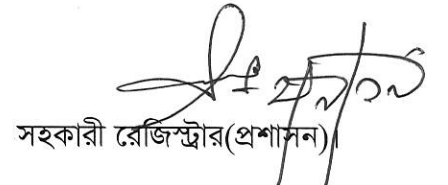 সহকারী রেজিস্ট্রার(প্রশাসন)